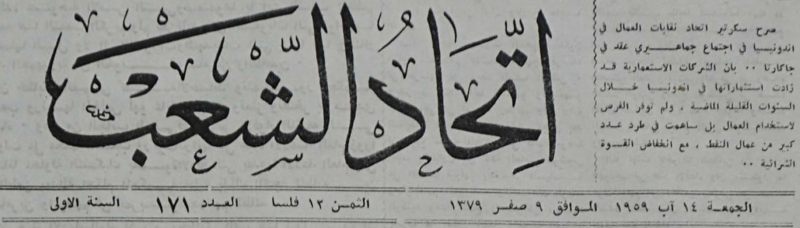 صرح سكرتير اتحاد نقابات العمال في
اندونيسيا في اجتماع جماهيري عقد في
جاكارتا ٠٠ بان الشركات الاستعمارية قد
زادت استثماراتها في اندونيسيا خلال
السنوات القليلة الماضية ، ولم توفر الفرص
لاستخدام العمال بل ساهمت في طرد عدد
كبير من عمال النفط ، مع انخفاض القوة
الشرائية ٠٠
اتّحادُ الشّعب
الجمعة ١٤ آب ١٩٥٩ الموافق ٩ صفر ١٣٧٩ الثمن ١٢ فلسا العدد ١٧١ السنة الاولى